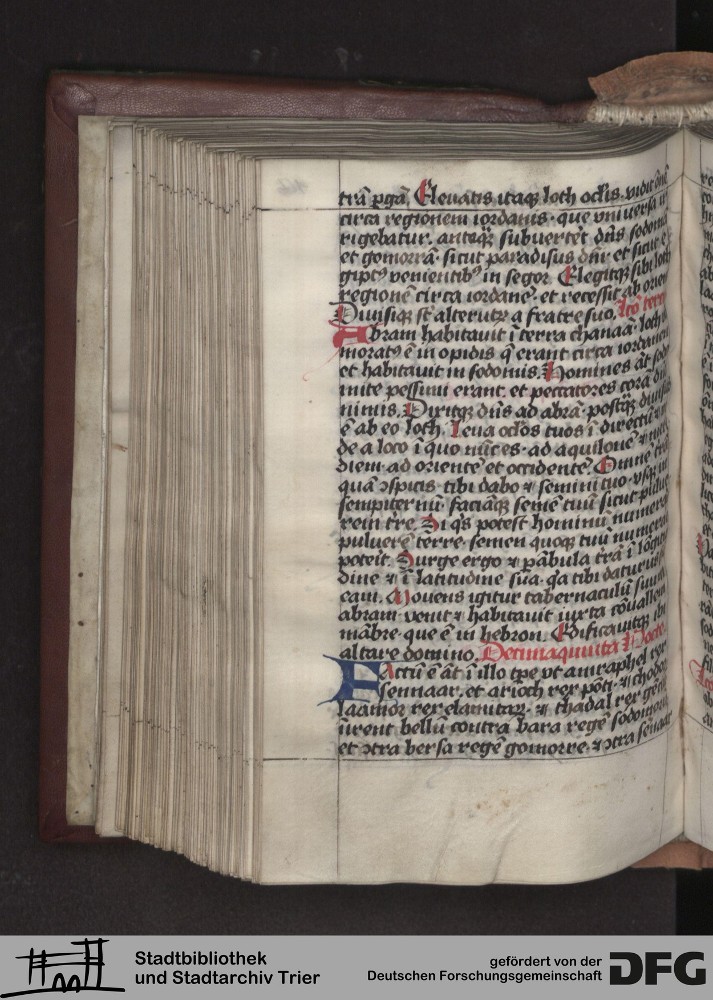 trā ꝑgā. Eleuatis itaqꝫ loth oclīs. vidit
circa regionem iordanis. que vniuersa
rigebatur. anteqꝫ subuertēt dn̄s sodomā
et gomorrā. sicut paradisus dn̄i et sicut
giptꝰ venientibꝰ in segor. Elegitqꝫ sibi loth
regionē circa iordanē. et recessit ab
Diuisiqꝫ st̄ alterutꝝ a fratre suo.
Abram habitauit ī terra chanaā. loth
moratꝰ ē in opidis q̄ erant circa iordanem
et habitauit in sodomis. Homines āt
mite pessimi erant. et peccatores corā
nimis. Dixitqꝫ dn̄s ad abrā. postqꝫ
ē ab eo loth. Leua oclōs tuos ī directū
de a loco ī quo nūc es. ad aquilonē
diem. ad orientē et occidentē. Omnē
quā ꝯspicis tibi dabo ⁊ semini tuo.
sempiternū. faciāqꝫ semē tuū sicut
rem tr̄e. Si q̄s potest hominū
puluerē terre. semen quoqꝫ tuū
poteit. Surge ergo ⁊ pābula tr̄ā ī
dine ⁊ ī latitudine sua. q̄a tibi
eam. Mouens igitur tabernaculū
abram. venit ⁊ habitauit iuxta cōuallem
mābre. que ē in hebron. Edificauitqꝫ ibi
altare domino. Decimaquinta
Factū ē āt ī illo tp̄e vt amraphel rex
sennaar. et arioch rex pōti. ⁊
laāmor rex elamitaꝝ. ⁊ thadal rex
īirent bellū contra bara regē
et ꝯtra bersa regē gomorre. ⁊ ꝯtra
Stadtbibliothek
und Stadtarchiv Trier
gefördert von der
Deutschen Forschungsgemeinschaft
DFG